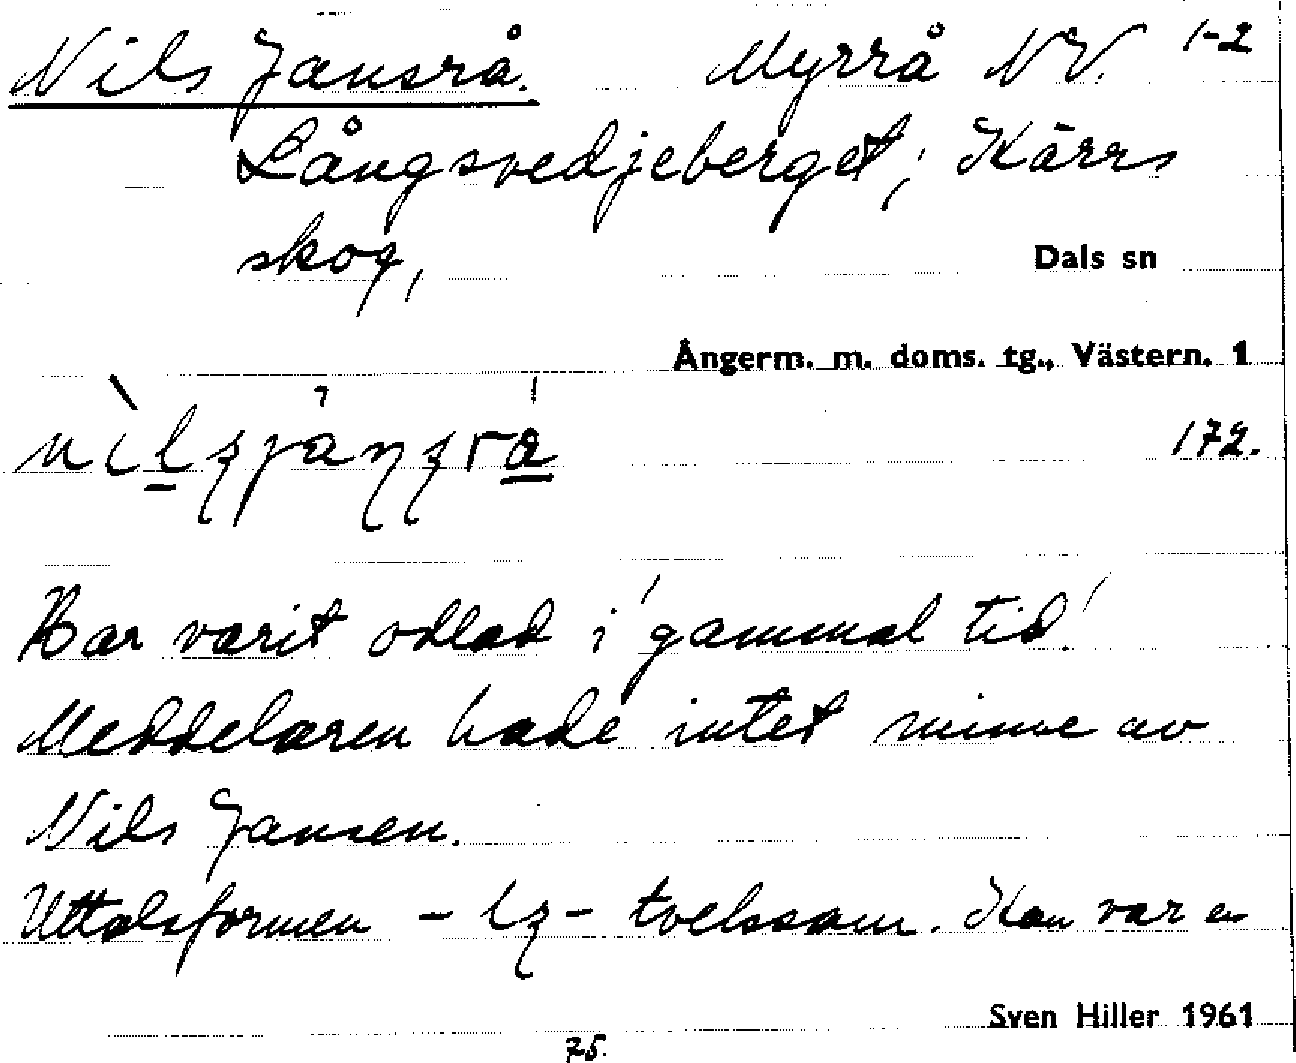 Nils Jansrå. Myrrå NV. 1-2
Långsvedjeberget; Kärrs
skog,
Dals sn
Ångerm. m. doms. tg., Västern. 1
172.
Har varit odlad i 'gammal tid'.
Meddelaren hade intet minne av
Nils Jansen.
Uttalsformen - - tveksam. Kan var en
Sven Hiller 1961
75.